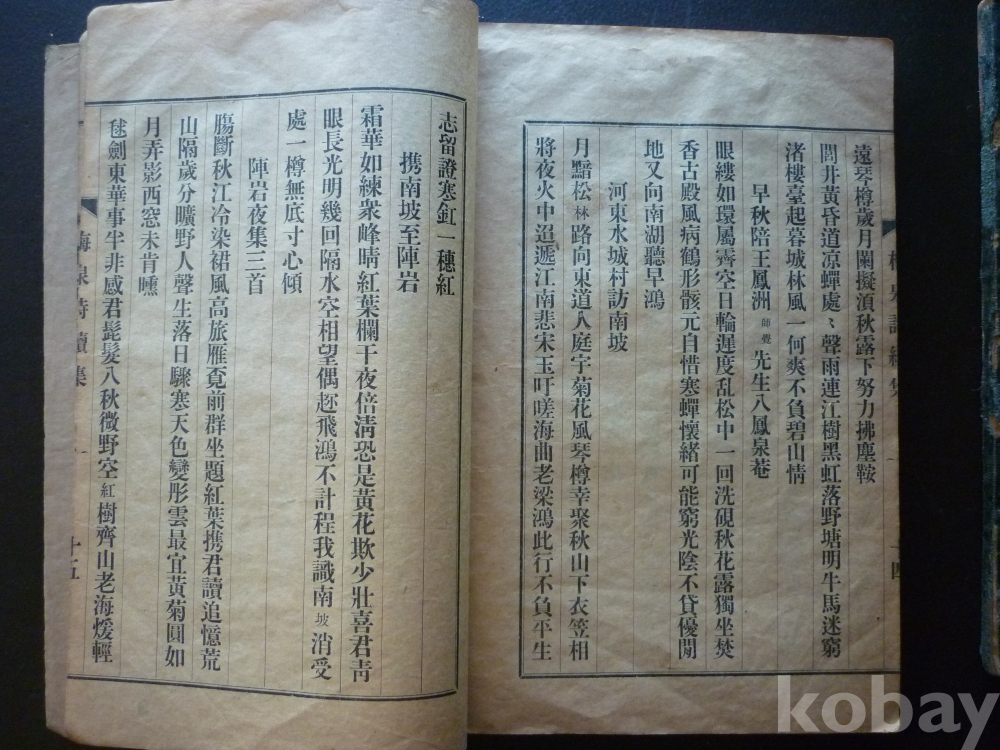 遠琴樽歲月闌擬湏秋露下努力拂塵鞍
閭井黃昏道凉蟬處〻聲雨連江樹黑虹落野塘明牛馬迷窮
渚樓臺起暮城林風一何爽不負碧山情
早秋陪王鳳洲 師 先生入鳳泉菴
眼縷如環屬霽空日輪遲度乱松中一回洗硯秋花露獨坐焚
香古殿風病鶴形骸元自惜寒蟬懷緒可能窮光陰不貸優閒
地又向南湖聽早鴻
河東水城村訪南坡
月黯松林路向東道人庭宇菊花風琴樽幸聚秋山下衣笠相
將夜火中迢遞江南悲宋玉吁嗟海曲老梁鴻此行不負平生
十四
志留證寒釭一穗紅
携南坡至陣岩
霜華如練衆峰晴紅葉欄干夜倍清恐是黃花欺少壯喜君靑
眼長光明幾回隔水空相望偶趂飛鴻不計程我識南坡消受
處一樽無底寸心傾
陣岩夜集三首
膓斷秋江冷染裙風高旅雁覔前群坐題紅葉携君讀追憶荒
山隔歲分曠野人聲生落日驟寒天色變彤雲最宜黃菊圓如
月弄影西窓未肯曛
毬劍東華事半非感君髭髮八秋微野空紅樹齊山老海煖輕
梅泉詩續集
十五
kobay